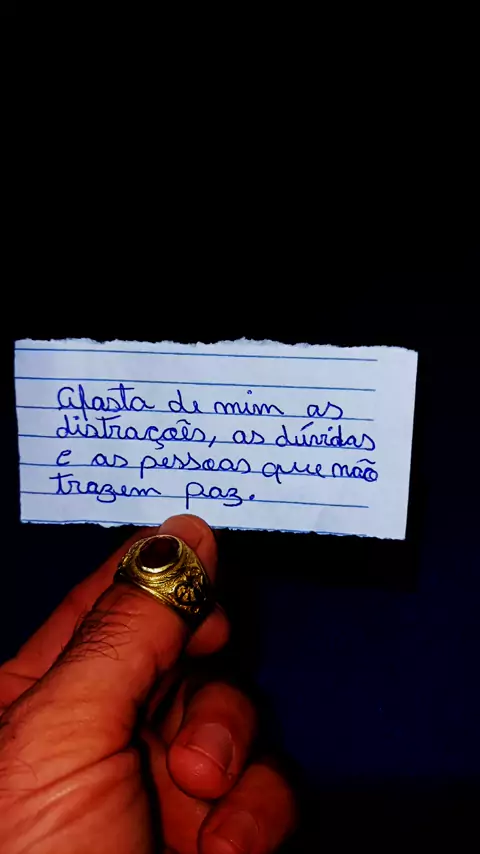 Afasta de mim as
distrações, as dúvidas
e as pessoas que não
trazem paz.